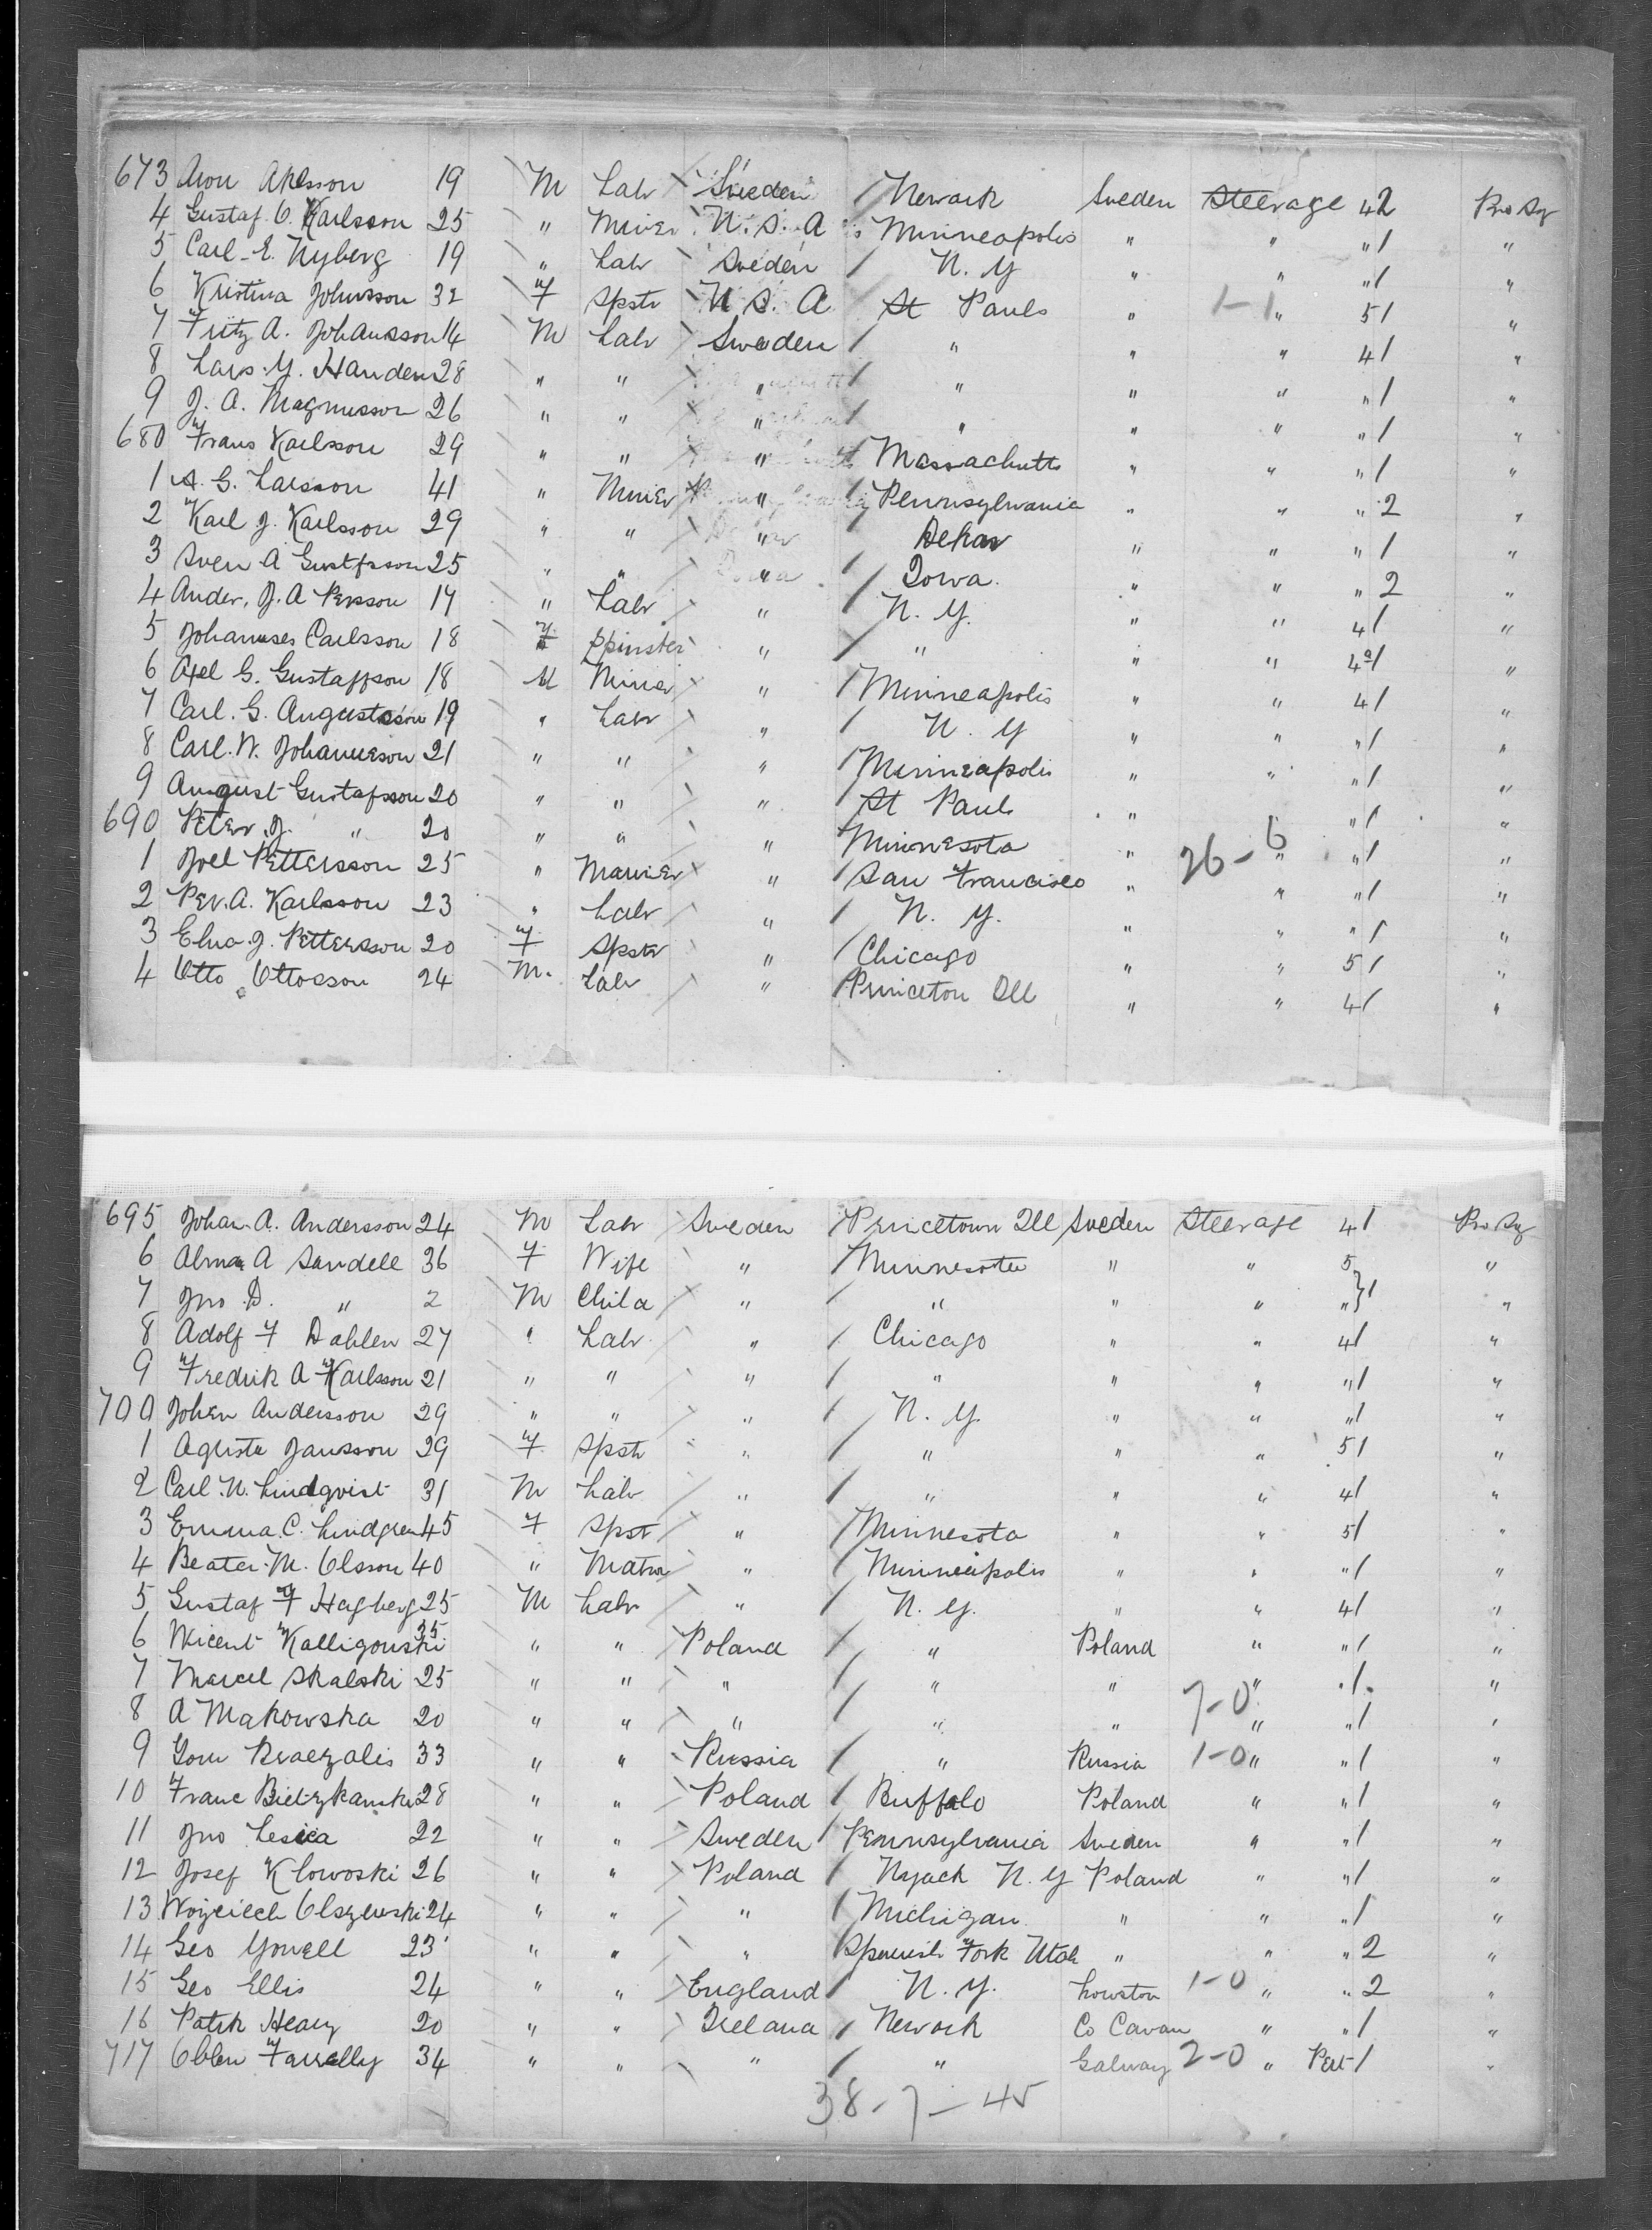 673 Aron Akesson 19 M Labr Sweden / Newark Sweden Steerage 42 Pro Sy
4 Gustaf. O. Karlsson 25 " Miner U. S. A Minneapolis " " " 1 "
5 Carl. E. Nyberg 19 " Labr Sweden / N. Y " " " 1 "
6 Kristina Johnsson 32 F Spstr U S. A St Pauls " 1-1 " 5 1 "
7 Fritz A. Johansson 14 M Labr Sweden / " " " 4 1 "
8 Lars. Y. Handen 28 " " " / " " " " 1 "
9 J. A. Magnusson 26 " " " / " " " " 1 "
680 Frans Karlsson 29 " " " Massachutts " " " 1 "
1 A. G. Larsson 41 " Miner " / Pennsylvania " " " 2 "
2 Karl J. Karlsson 29 " " " " " " 1 "
3 Sven A Gustfsson 25 " " " / Iowa. " " " 2 "
4 Ander. J. A Persson 17 " Labr " / N. Y. " " 4 1 "
5 Johannes Carlsson 18 F Spinster " / " " " 4 1 "
6 Axel G. Gustaffson 18 M Miner " / Minneapolis " " 4 1 "
7 Carl. G. Augustsson 19 " Labr " / N. Y " " " 1 "
8 Carl. W. Johanneson 21 " " " / Minneapolis " " " 1 "
9 August Gustafsson 20 " " " / St Paul " " " 1 "
690 Peter. J. " 20 " " " / Minnesota " 26-6 " " 1 "
1 Joel Pettersson 25 " Mariner " / San Francisco " " " 1 "
2 Per. A. Karlsson 23 " Labr " / N. Y. " " " 1 "
3 Elna. J. Pettersson 20 F Spstr " / Chicago " " 5 1 "
4 Otto Ottosson 24 M. Labr " / Princeton Ill " " 4 1 "
695 Johan. A. Andersson 24 M Labr Sweden / Princetown Ill Sweden Steerage 4 1 Pro Sy
6 Alma A Sandell 36 F Wife " / Minnesota " " 5 "
7 Jno D. " 2 M Child " / " " " " } 1 "
8 Adolf F Dahlen 27 " Labr " / Chicago " " 4 1 "
9 Fredrik A Karlsson 21 " " " / " " " " 1 "
700 Johan Andersson 29 " " " / N. Y. " " " 1 "
1 Agusta Jansson 29 F Spstr " / " " " 5 1 "
2 Carl. N. Lindqvist 31 M Labr " / " " " 4 1 "
3 Emma. C. Lindgren 45 F Spstr " / Minnesota " " 5 1 "
4 Beater. M. Olsson 40 " Matron " / Minneapolis " " " 1 "
5 Gustaf F Hagberg 25 M Labr " / N. Y. " " 4 1 "
6 Wicent Kalligouski 35 " " Poland / " Poland " " 1 "
7 Marcel Skalski 25 " " " / " " " " 1 "
8 A Makowska 20 " " " / " " 7-0 " " 1 "
9 33 " " Russia / " Russia 1-0 " " 1 "
10 Franc 28 " " Poland / Buffalo Poland " " 1 "
11 Jno Lesica 22 " " Sweden / Pennsylvania Sweden " " 1 "
12 Josef Klowoski 26 " " Poland / Nyack N. Y Poland " " 1 "
13 Wojciech Olszewski 24 " " " / Michigan " " " 1 "
14 Geo Yowell 23 " " " / Spanish Fork Utah " " " 2 "
15 Geo Ellis 24 " " England / N. Y. 1-0 " " 2 "
16 Patrk Heany 20 " " Ireland / Newark Co Cavan " " 1 "
717 Farrelly 34 " " " / " Galway 2-0 " 1 "
38-7-45